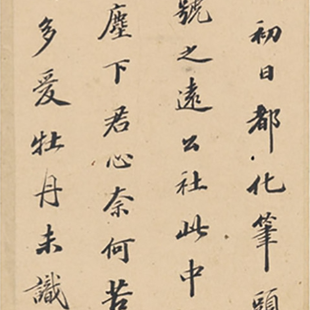 初日都化筆頭
號之遠公社此中
塵下君心奈何苦
多爱牡丹未識